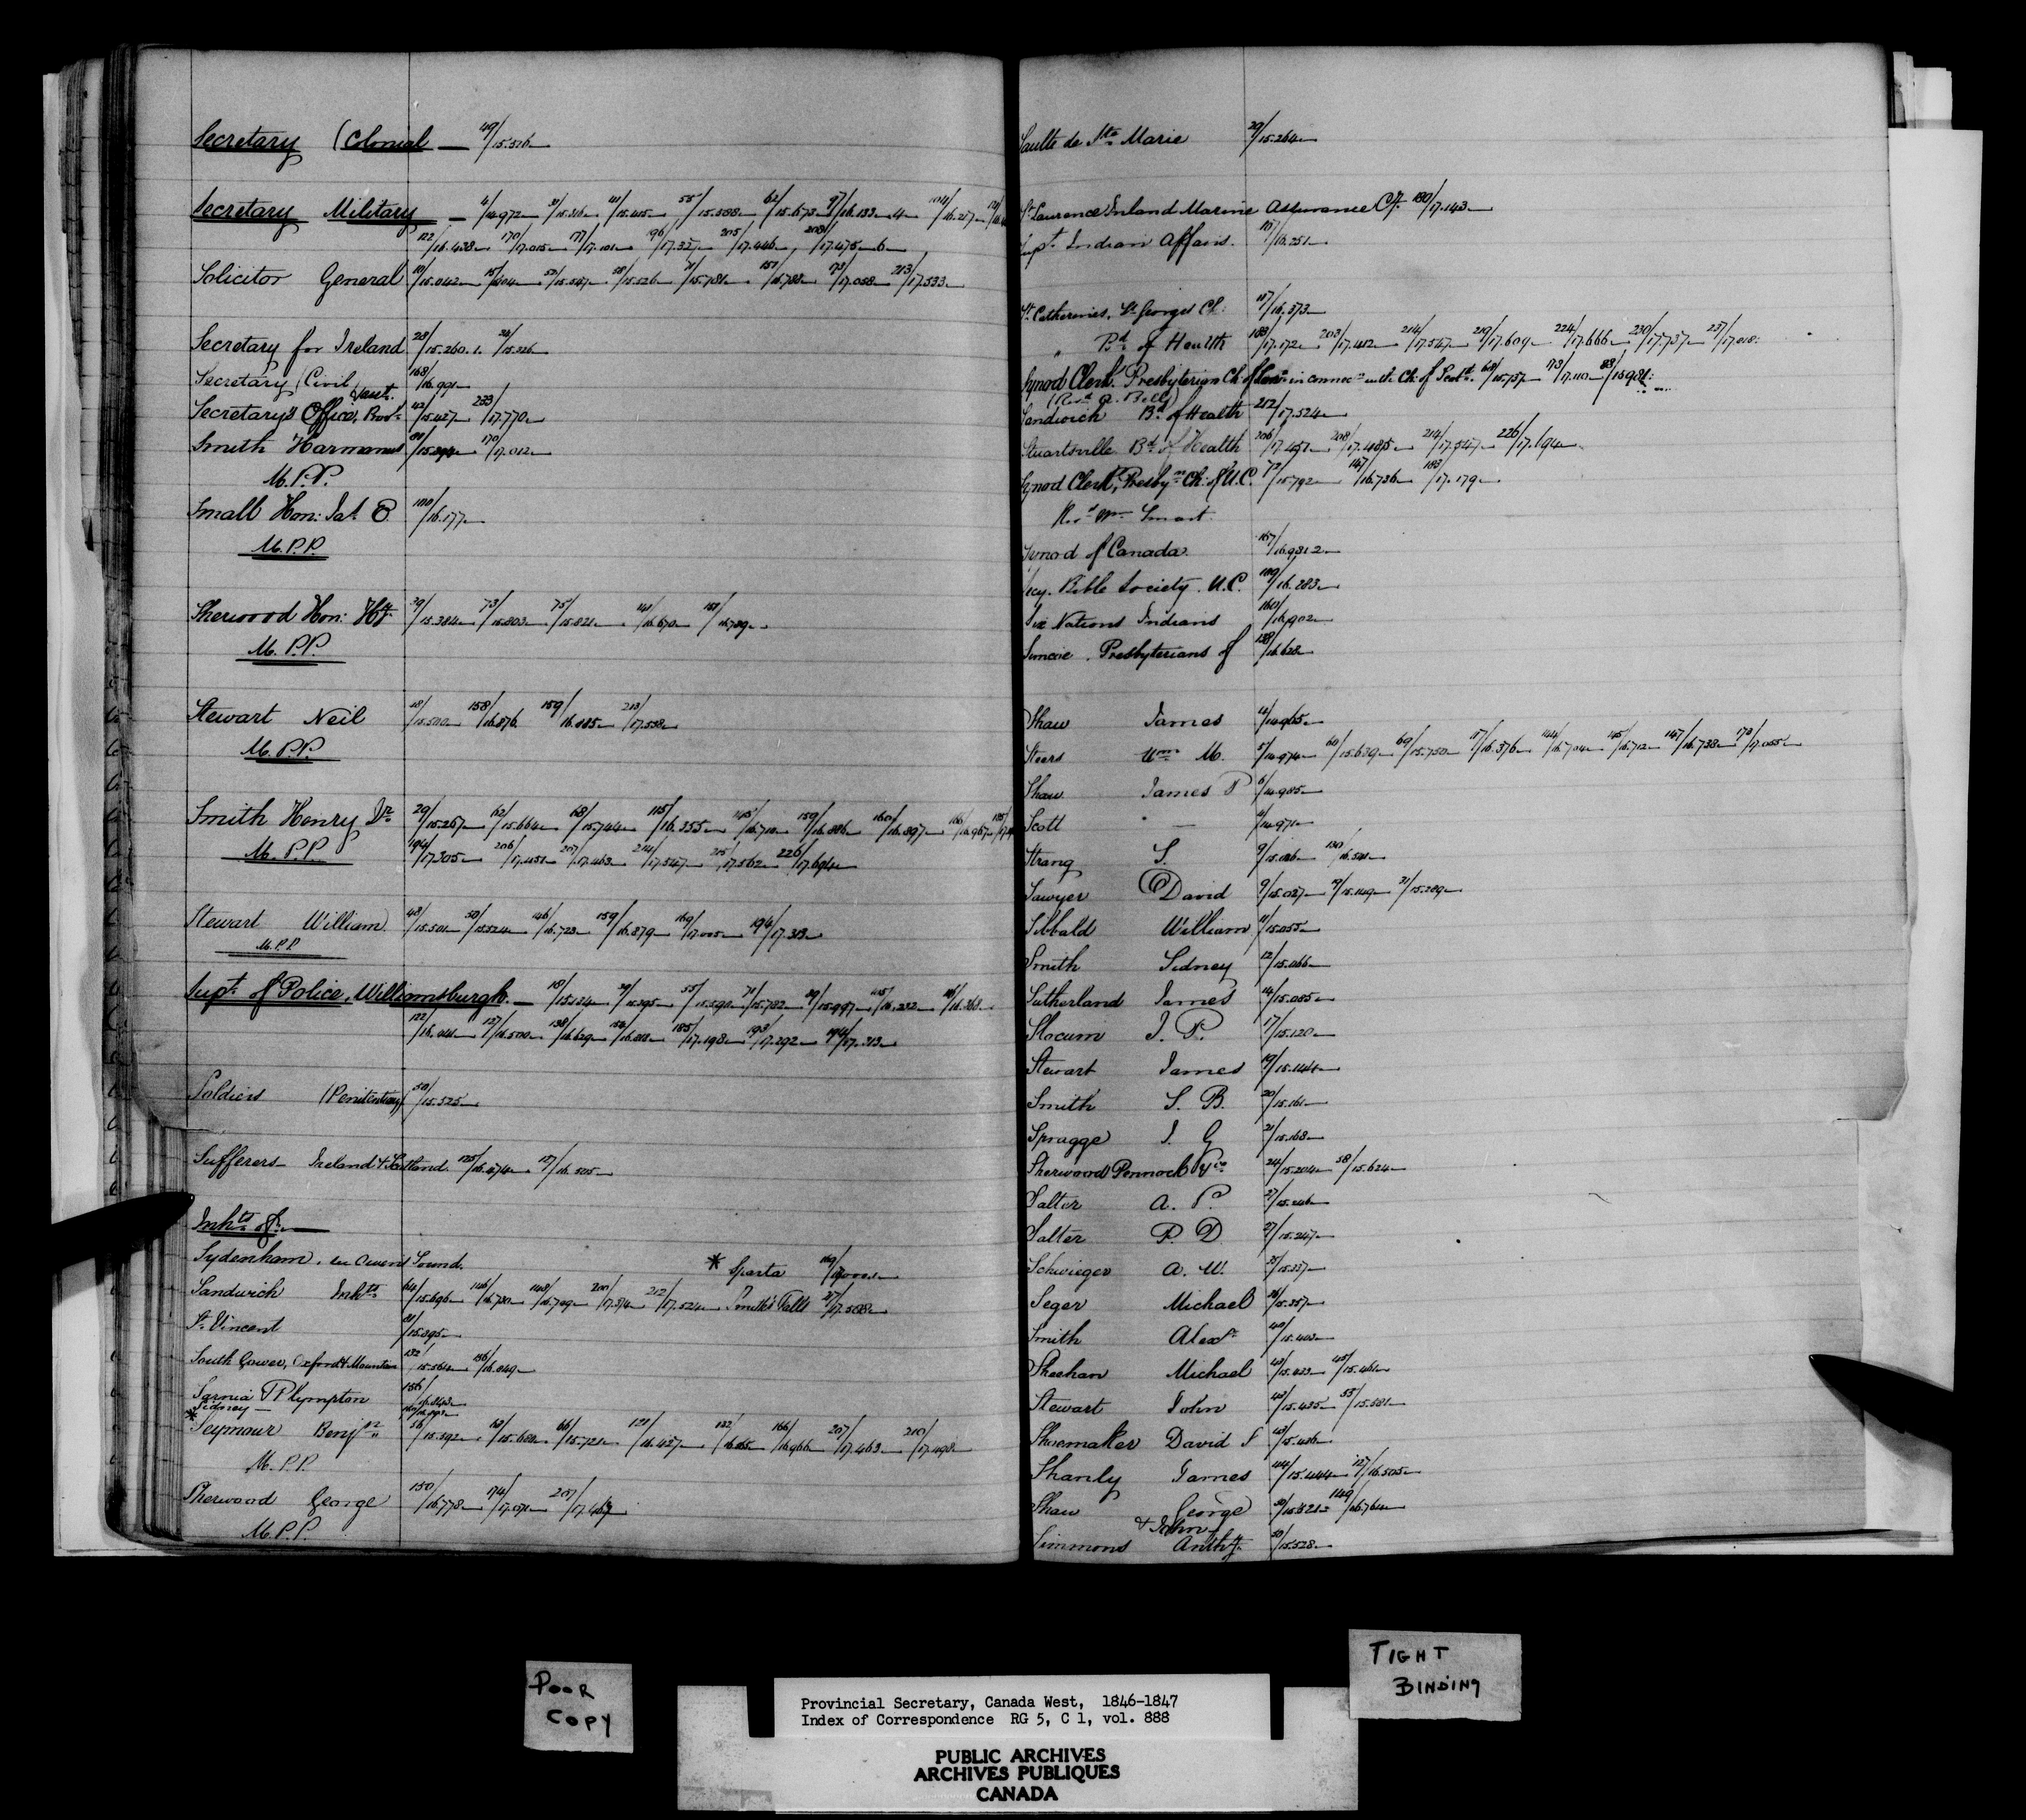 Secretary (Colonial — 49/15.516
Secretary Military — 4/14.972 31/15.316 41/15.415 55/15.588 62/15.673 97/16.133.4 104/16.227
122/16.438 170/17.015 177/17.101 196/17.327 205/17.446 208/17.475.6
Solicitor General 10/15.042 52/15.547 71/15.781 151/16.788 173/17.058 213/17.533
Secretary for Ireland 28/15.260.1.
Secretary (Civil 168/16.991
Secretary's Office, Prov. 42/15.427 233/17.770
Smith Harmanus 170/17.012
M.P.P.
Small Hon: Jas. E 100/16.177
M.P.P.
Sherwood Hon: Hy. 39/15.384 73/15.803 75/15.821 141/16.670 151/16.789
M.P.P.
Stewart Neil 48/15.500 158/16.876 159/16.885 213/17.538
M.P.P.
Smith Henry Jr. 29/15.267 62/15.664 68/15.744 115/16.355 145/16.710 159/16.886 160/16.897 166/16.967
M.P.P. 194/17.305 206/17.451 207/17.463 214/17.547 215/17.562 226/17.694
Stewart William 48/15.501 50/15.524 146/16.723 159/16.879 169/17.005 194/17.313
M.P.P.
Supt. of Police, Williamsburgh — 18/15.134 55/15.590 71/15.782 89/15.997 105/16.232
127/16.500 138/16.629 185/17.198 193/17.292 194/17.313
Soldiers (Penitentiary) 50/15.525
Sufferers Ireland & Scotland 125/16.474 127/16.505
Inhts. of
Sydenham, in Owen's Sound.
* Sparta
Sandwich Inhts. 64/15.696 146/16.730 212/17.524 Smith's Falls 217/17.588
St. Vincent 81/15.895
South Gower, Oxford & Mountain 156/16.849
Sarnia & Plympton 156
* Sidney
Seymour Benjn. 56/15.592 66/15.721 121/16.427 166/16.966 207/17.463 210/17.498
M.P.P.
Sherwood George 150/16.778 174/17.071 207/17.463
M.P.P.
Saulte de Ste. Marie 29/15.264
St. Laurence Inland Marine Assurance Cy. 180/17.143
Supt. Indian Affairs. 107/16.251
St. Catherines, St. Georges Ch: 117/16.373
" Bd. of Health 183/17.172 203/17.412 214/17.547 219/17.609 224/17.666 230/17.737 237/17.818
Synod Clerk Presbyterian Ch. of Can. in connecn. with Ch. of Scotd. 68/15.757
(Revd. A. Bell)
Sandwich Bd. of Health 212/17.524
Stuartsville Bd. of Health 206/17.457 208/17.485 214/17.547 226/17.694
Synod Clerk, Presbyn. Ch: of U.C. 72/15.792 147/16.736 183/17.179
Revd. Wm. Smart
Synod of Canada 167/16.981.2
Secy. Bible Society. U.C. 109/16.283
Six Nations Indians 160/16.902
Simcoe, Presbyterians of 138/16.628
Shaw James 4/14.965
Steers Wm. M. 5/14.974 60/15.639 69/15.750 117/16.376 144/16.704 145/16.712 147/16.738 173/17.055
Shaw James P 6/14.985
Scott — 4/14.971
Strang S. 9/15.026 130/16.541
Sawyer David 9/15.027 19/15.149 31/15.289
Sibbald William 11/15.055
Smith Sidney 12/15.066
Sutherland James 14/15.085
Slocum J. P. 17/15.120
Stewart James 19/15.144
Smith S. B. 20/15.161
Spragge J. G 21/15.168
Sherwood Pennock & Co. 24/15.204 58/15.624
Salter A. P. 27/15.246
Salter P. D 27/15.247
Schwieger A. W. 35/15.337
Seger Michael 36/15.357
Smith Alexr. 40/15.403
Sheehan Michael 42/15.423 45/15.461
Stewart John 42/15.435 55/15.581
Shoemaker David S 43/15.436
Shanly James 44/15.444 127/16.505
Shaw George 149/16.764
& John
Simmons Anthy. 50/15.528
POOR
COPY
TIGHT
BINDING
Provincial Secretary, Canada West, 1846-1847
Index of Correspondence RG 5, C 1, vol. 888
PUBLIC ARCHIVES
ARCHIVES PUBLIQUES
CANADA